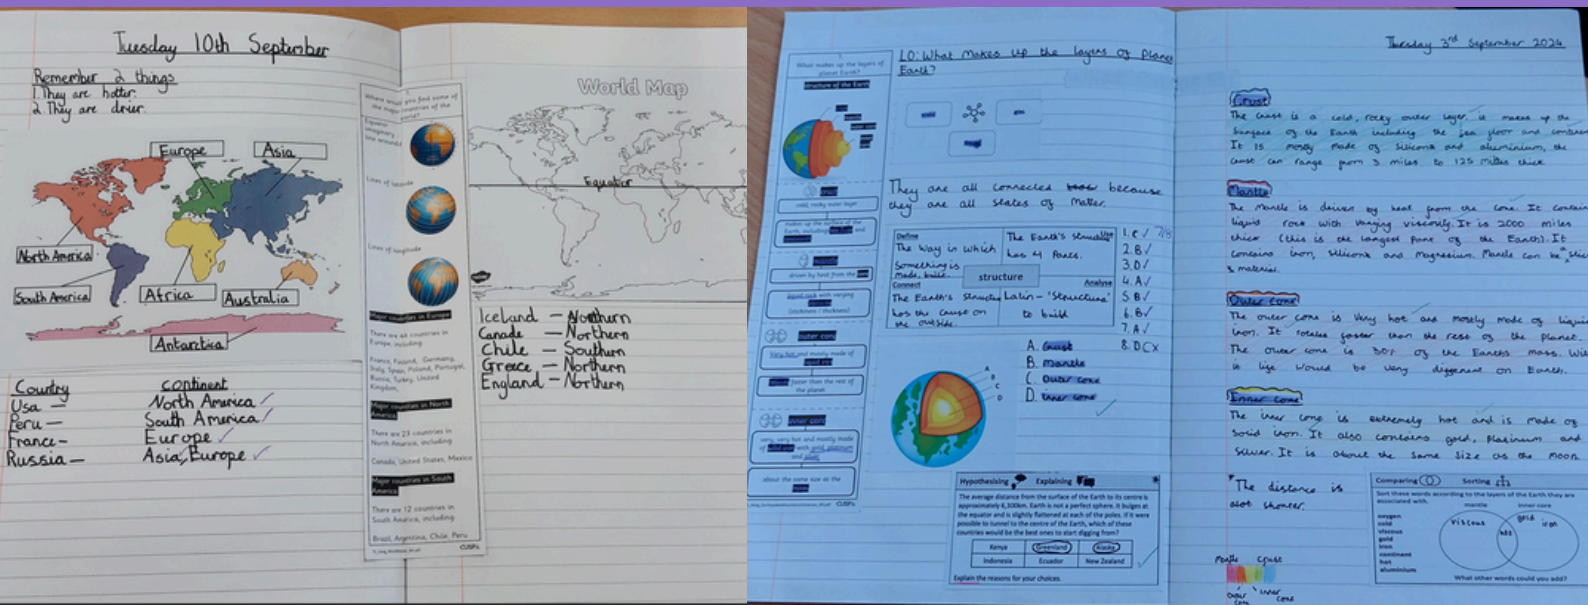 Tuesday 10th September
Remember 2 things
1. They are hotter.
2. They are drier.
Europe
Asia
North America
South America
Africa
Australia
Antarctica
Country continent
Usa — North America
Peru — South America
France — Europe
Russia — Asia, Europe
Where would you find some of
the major countries of the
world?
Equator
imaginary
line around
Lines of latitude
Lines of longitude
Major countries in Europe
There are 44 countries in
Europe, including:
France, Finland, Germany,
Italy, Spain, Poland, Portugal,
Russia, Turkey, United
Kingdom,
Major countries in North
America
There are 23 countries in
North America, including:
Canada, United States, Mexico
Major countries in South
America
There are 12 countries in
South America, including:
Brazil, Argentina, Chile, Peru
CUSP
World Map
Equator
Iceland — Northern
Canada — Northern
Chile — Southern
Greece — Northern
England — Northern
What makes up the layers of
planet Earth?
Structure of the Earth
crust
cold, rocky outer layer
makes up the surface of the
Earth, including
mantle
driven by heat from the
liquid rock with varying
(stickiness / thickness)
outer core
Very hot and mostly made of
faster than the rest of
the planet
inner core
very, very hot and mostly made
of solid iron with gold, platinum
and silver
about the same size as the
CUSP
LO: What Makes up the layers of Planet
Earth?
They are all connected because
they are all states of matter.
Define
The Way in which
Something is
made, built.
Use
The Earth's structure
has 4 Parts.
structure
Connect
The Earth's Structure
has the crust on
the outside.
Analyse
Latin - "Structura"
to build
1. C 7/8
2. B
3. D
4. A
5. B
6. B
7. A
8. D C x
A. Crust
B. Mantle
C. Outer core
D. Inner core
A
B
C
D
Hypothesising Explaining
The average distance from the surface of the Earth to its centre is
approximately 6,300km. Earth is not a perfect sphere. It bulges at
the equator and is slightly flattened at each of the poles. If it were
possible to tunnel to the centre of the Earth, which of these
countries would be the best ones to start digging from?
Kenya Greenland Alaska
Indonesia Ecuador New Zealand
Explain the reasons for your choices.
Tuesday 3rd September 2024
Crust
The crust is a cold, rocky outer layer. it makes up the
Surface of the Earth including the sea floor and
It is mostly made of silicone and aluminium, the
crust can range from 3 miles to 125 miles thick
Mantle
The mantle is driven by heat from the core. It
liquid rock with varying viscosity. It is 2000 miles
thick (this is the largest part of the Earth). It
contains iron, silicone and magnesium. Mantle can be a
material.
Outer core
The outer core is very hot and mostly made of
iron. It rotates faster than the rest of the planet.
The outer core is 30% of the Earths mass.
is life would be very different on Earth.
Inner core
The inner core is extremely hot and is made of
Solid iron. It also contains gold, Platinum and
Silver. It is about the same size as the moon
The distance is
shorter.
Mantle Crust
outer core
inner core
Comparing Sorting
Sort these words according to the layers of the Earth they are
associated with.
oxygen
cold
viscous
gold
iron
continent
hot
aluminium
mantle inner core
viscous
hot
gold
iron
What other words could you add?